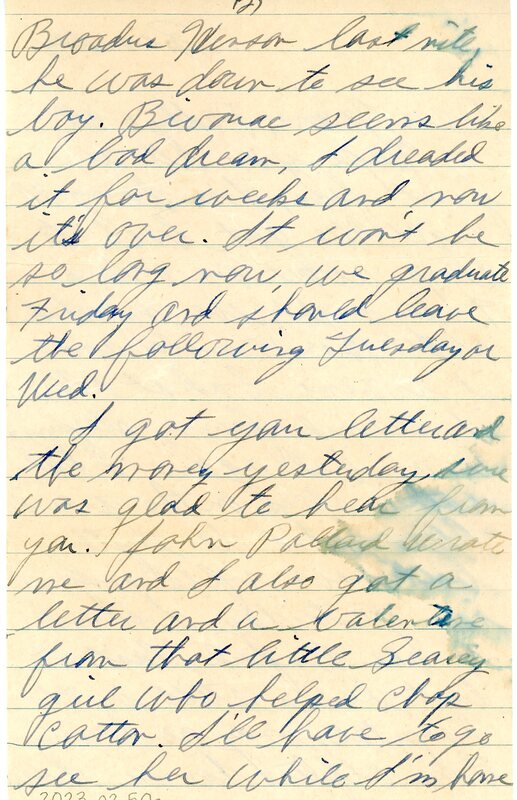 (2)
Broadus Henson last nite,
he was down to see his
boy. Bivouac seems like
a bad dream, I dreaded
it for weeks and now
it's over. It won't be
so long now, we graduate
Friday and should leave
the following Tuesday or
Wed.
I got your letter and
the money yesterday sure
was glad to hear from
you. John Pollard wrote
me and I also got a
letter and a valentine
from that little Searcy
girl who helped chop
cotton. I'll have to go
see her while I'm home